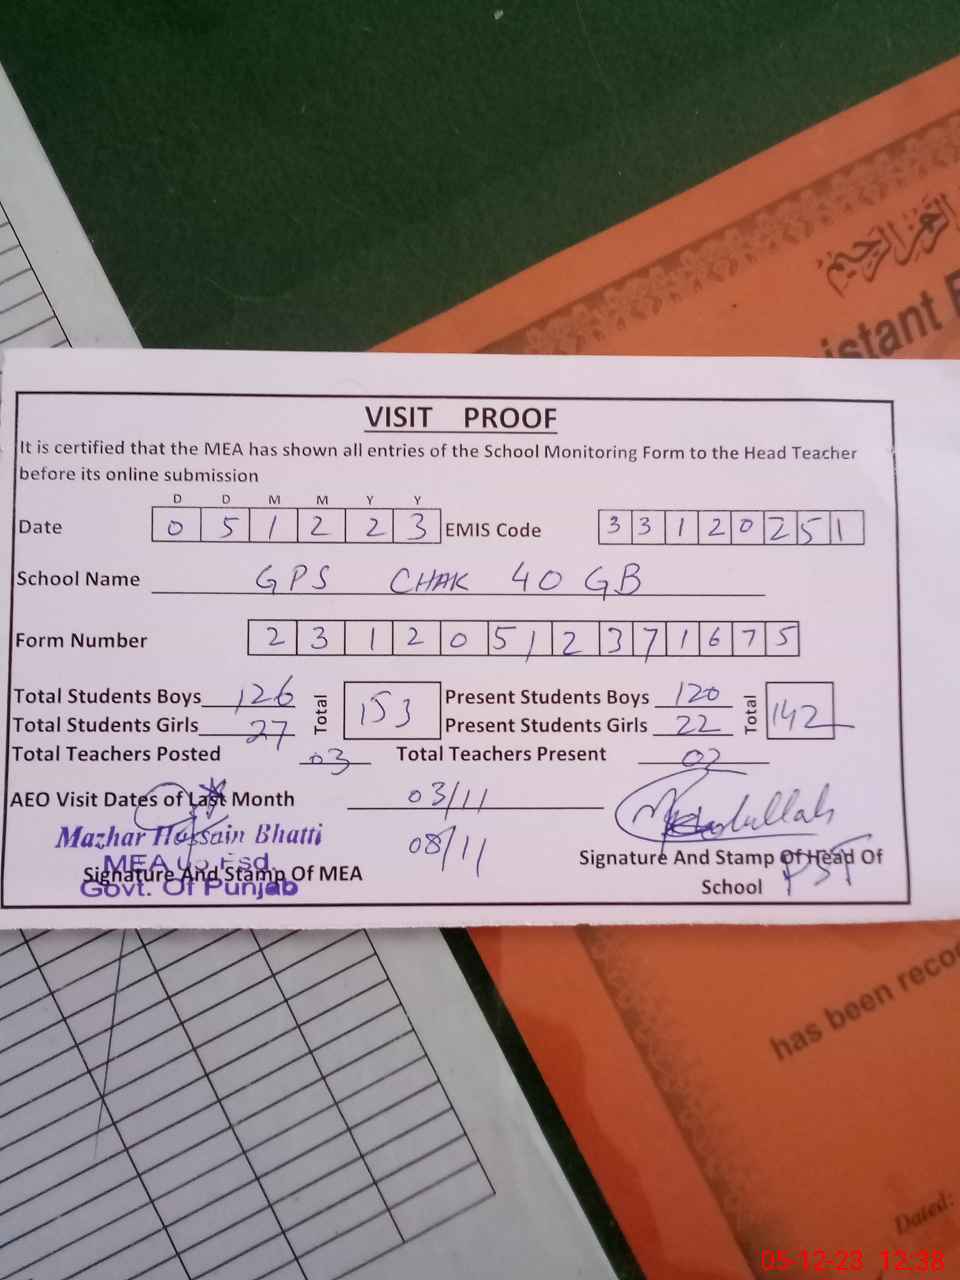 الرحمن الرحيم
istant
VISIT PROOF
It is certified that the MEA has shown all entries of the School Monitoring Form to the Head Teacher
before its online submission
D D M M Y Y
Date 0 5 1 2 2 3 EMIS Code 3 3 1 2 0 2 5 1
School Name GPS CHAK 40 GB
Form Number 2 3 1 2 0 5 1 2 3 7 1 6 7 5
Total Students Boys 126 Total 153 Present Students Boys 120 Total 142
Total Students Girls 27 Present Students Girls 22
Total Teachers Posted 03 Total Teachers Present 02
AEO Visit Dates of Last Month 03/11
08/11
Mazhar Hussain Bhatti
MEA Fsd
Govt. Of Punjab
Signature And Stamp Of MEA
Signature And Stamp Of Head Of
School PST
has been
Dated:
05-12-23 12:38